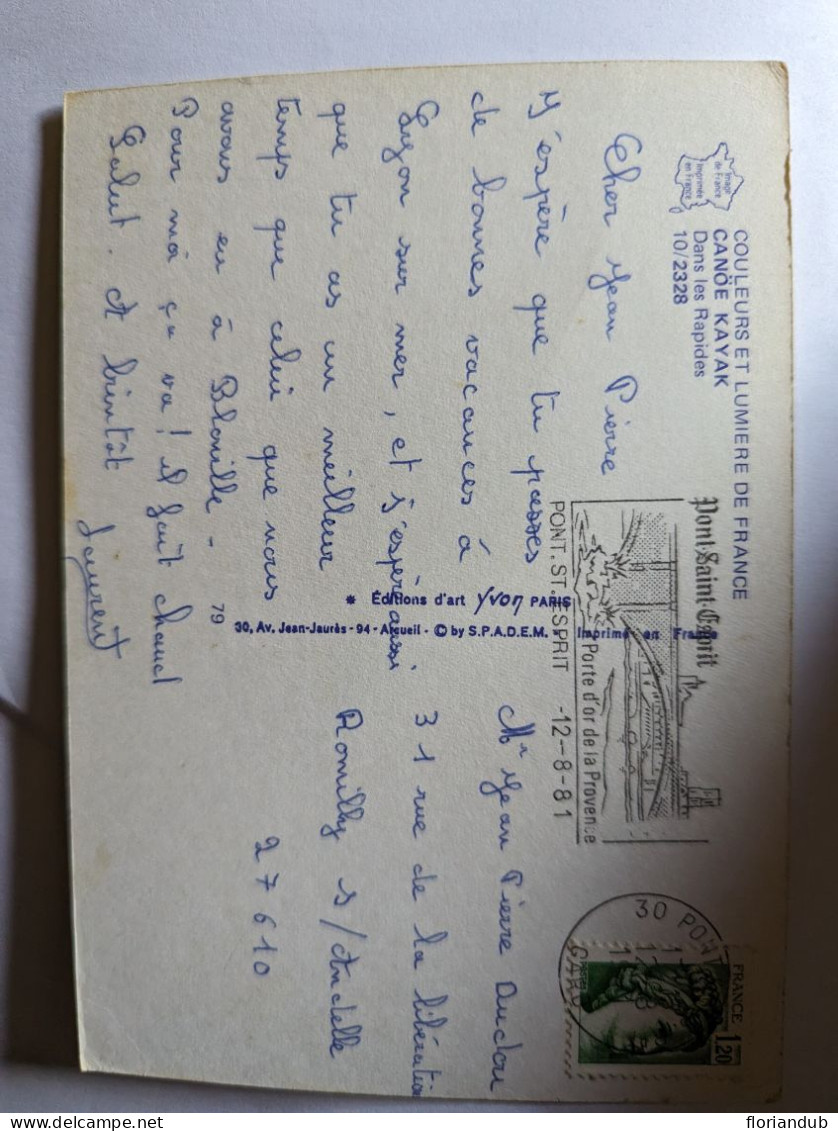 COULEURS ET LUMIERE DE FRANCE
CANÖE KAYAK
Dans les Rapides
10/2328
Image
de France
Imprimée
en France
Cher Jean Pierre
J'espère que tu passes
de bonnes vacances à
Luyon sur mer, et j'espère aussi
que tu as un meilleur
temps que celui que nous
avons eu à Blonville -
Pour moi ça va! il fait chaud
Salut. A bientôt
Laurent
79
* Editions d'art Yvon PARIS
30, Av. Jean-Jaurès - 94 - Arcueil - © by S.P.A.D.E.M. - Imprimé en France
Pont-Saint-Esprit
Porte d'or de la Provence
PONT.ST.ESPRIT -12-8-81
30 PONT
GARD
FRANCE
1,20
Mr Jean Pierre Audou
31 rue de la libération
Romilly s/Andelle
27610
floriandub